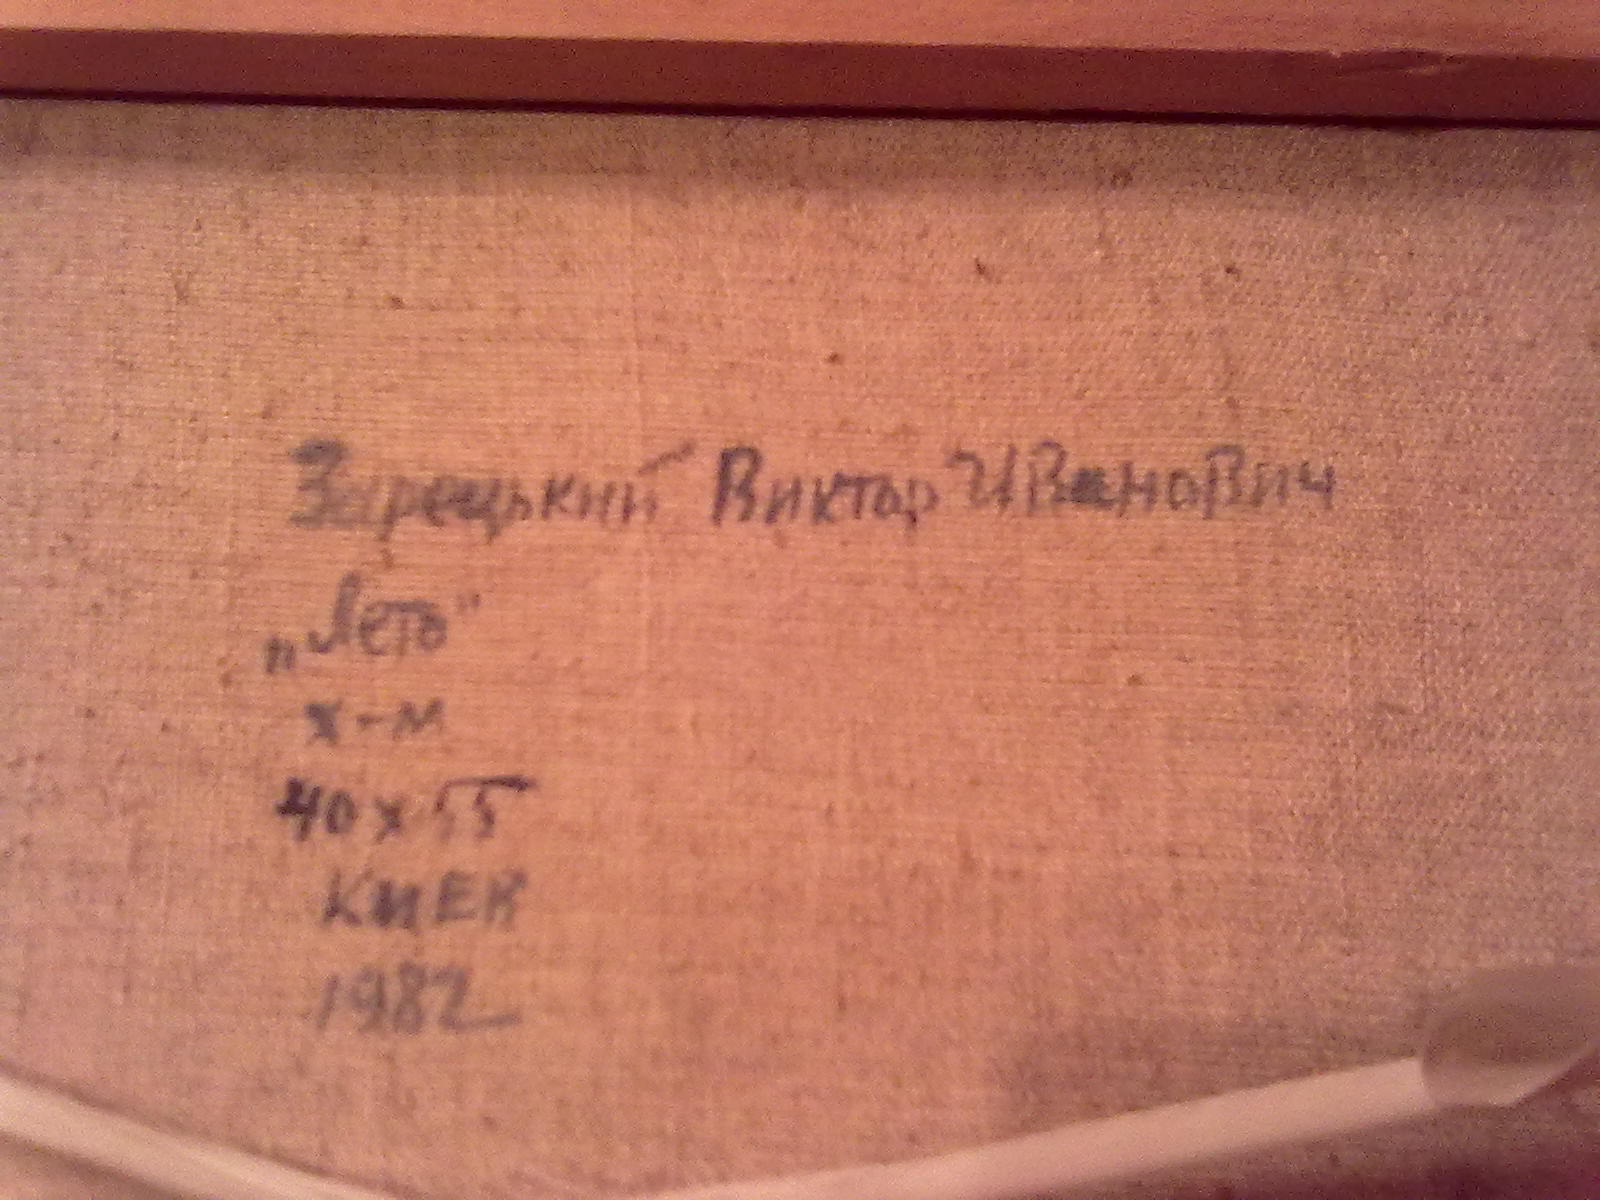 Зарецький Виктор Иванович
„Лето"
х-м
40х55
КИЕВ
1982